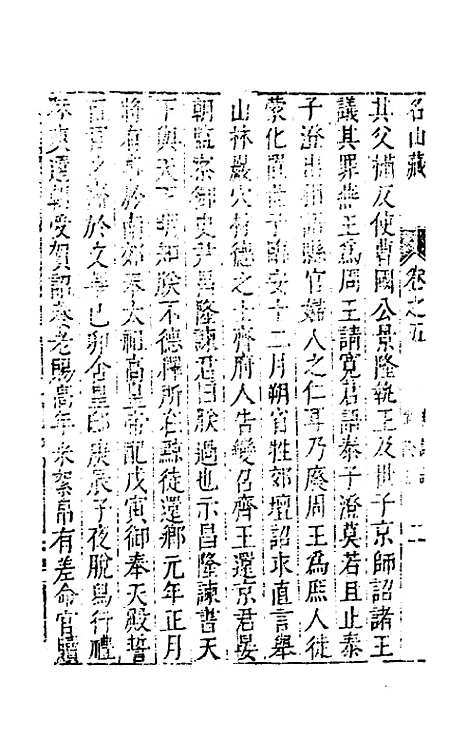 名山藏 卷之五 二
其父橚反使曹國公景隆執王及世子京師詔諸王
議其罪燕王爲周王請寛君語泰子澄莫若且止泰
子澄出相語縣官婦人之仁耳乃廢周王爲庶人徒
蒙化置世子臨安十二月朔省牲郊壇詔求直言舉
山林巖穴材德之士齊府人告變召齊王還京君晏
朝監察御史尹昌隆諫君曰朕過也示昌隆諫書天
下與天下 知朕不德釋所在 徒還鄉元年正月
將有事於南郊奉太祖高皇帝配戊寅御奉天殿誓
百官 齋於文華己卯舍皇邸庚辰子夜脫舄行禮
昧爽還朝受賀詔養老賜高年米絮帛有差命官贖